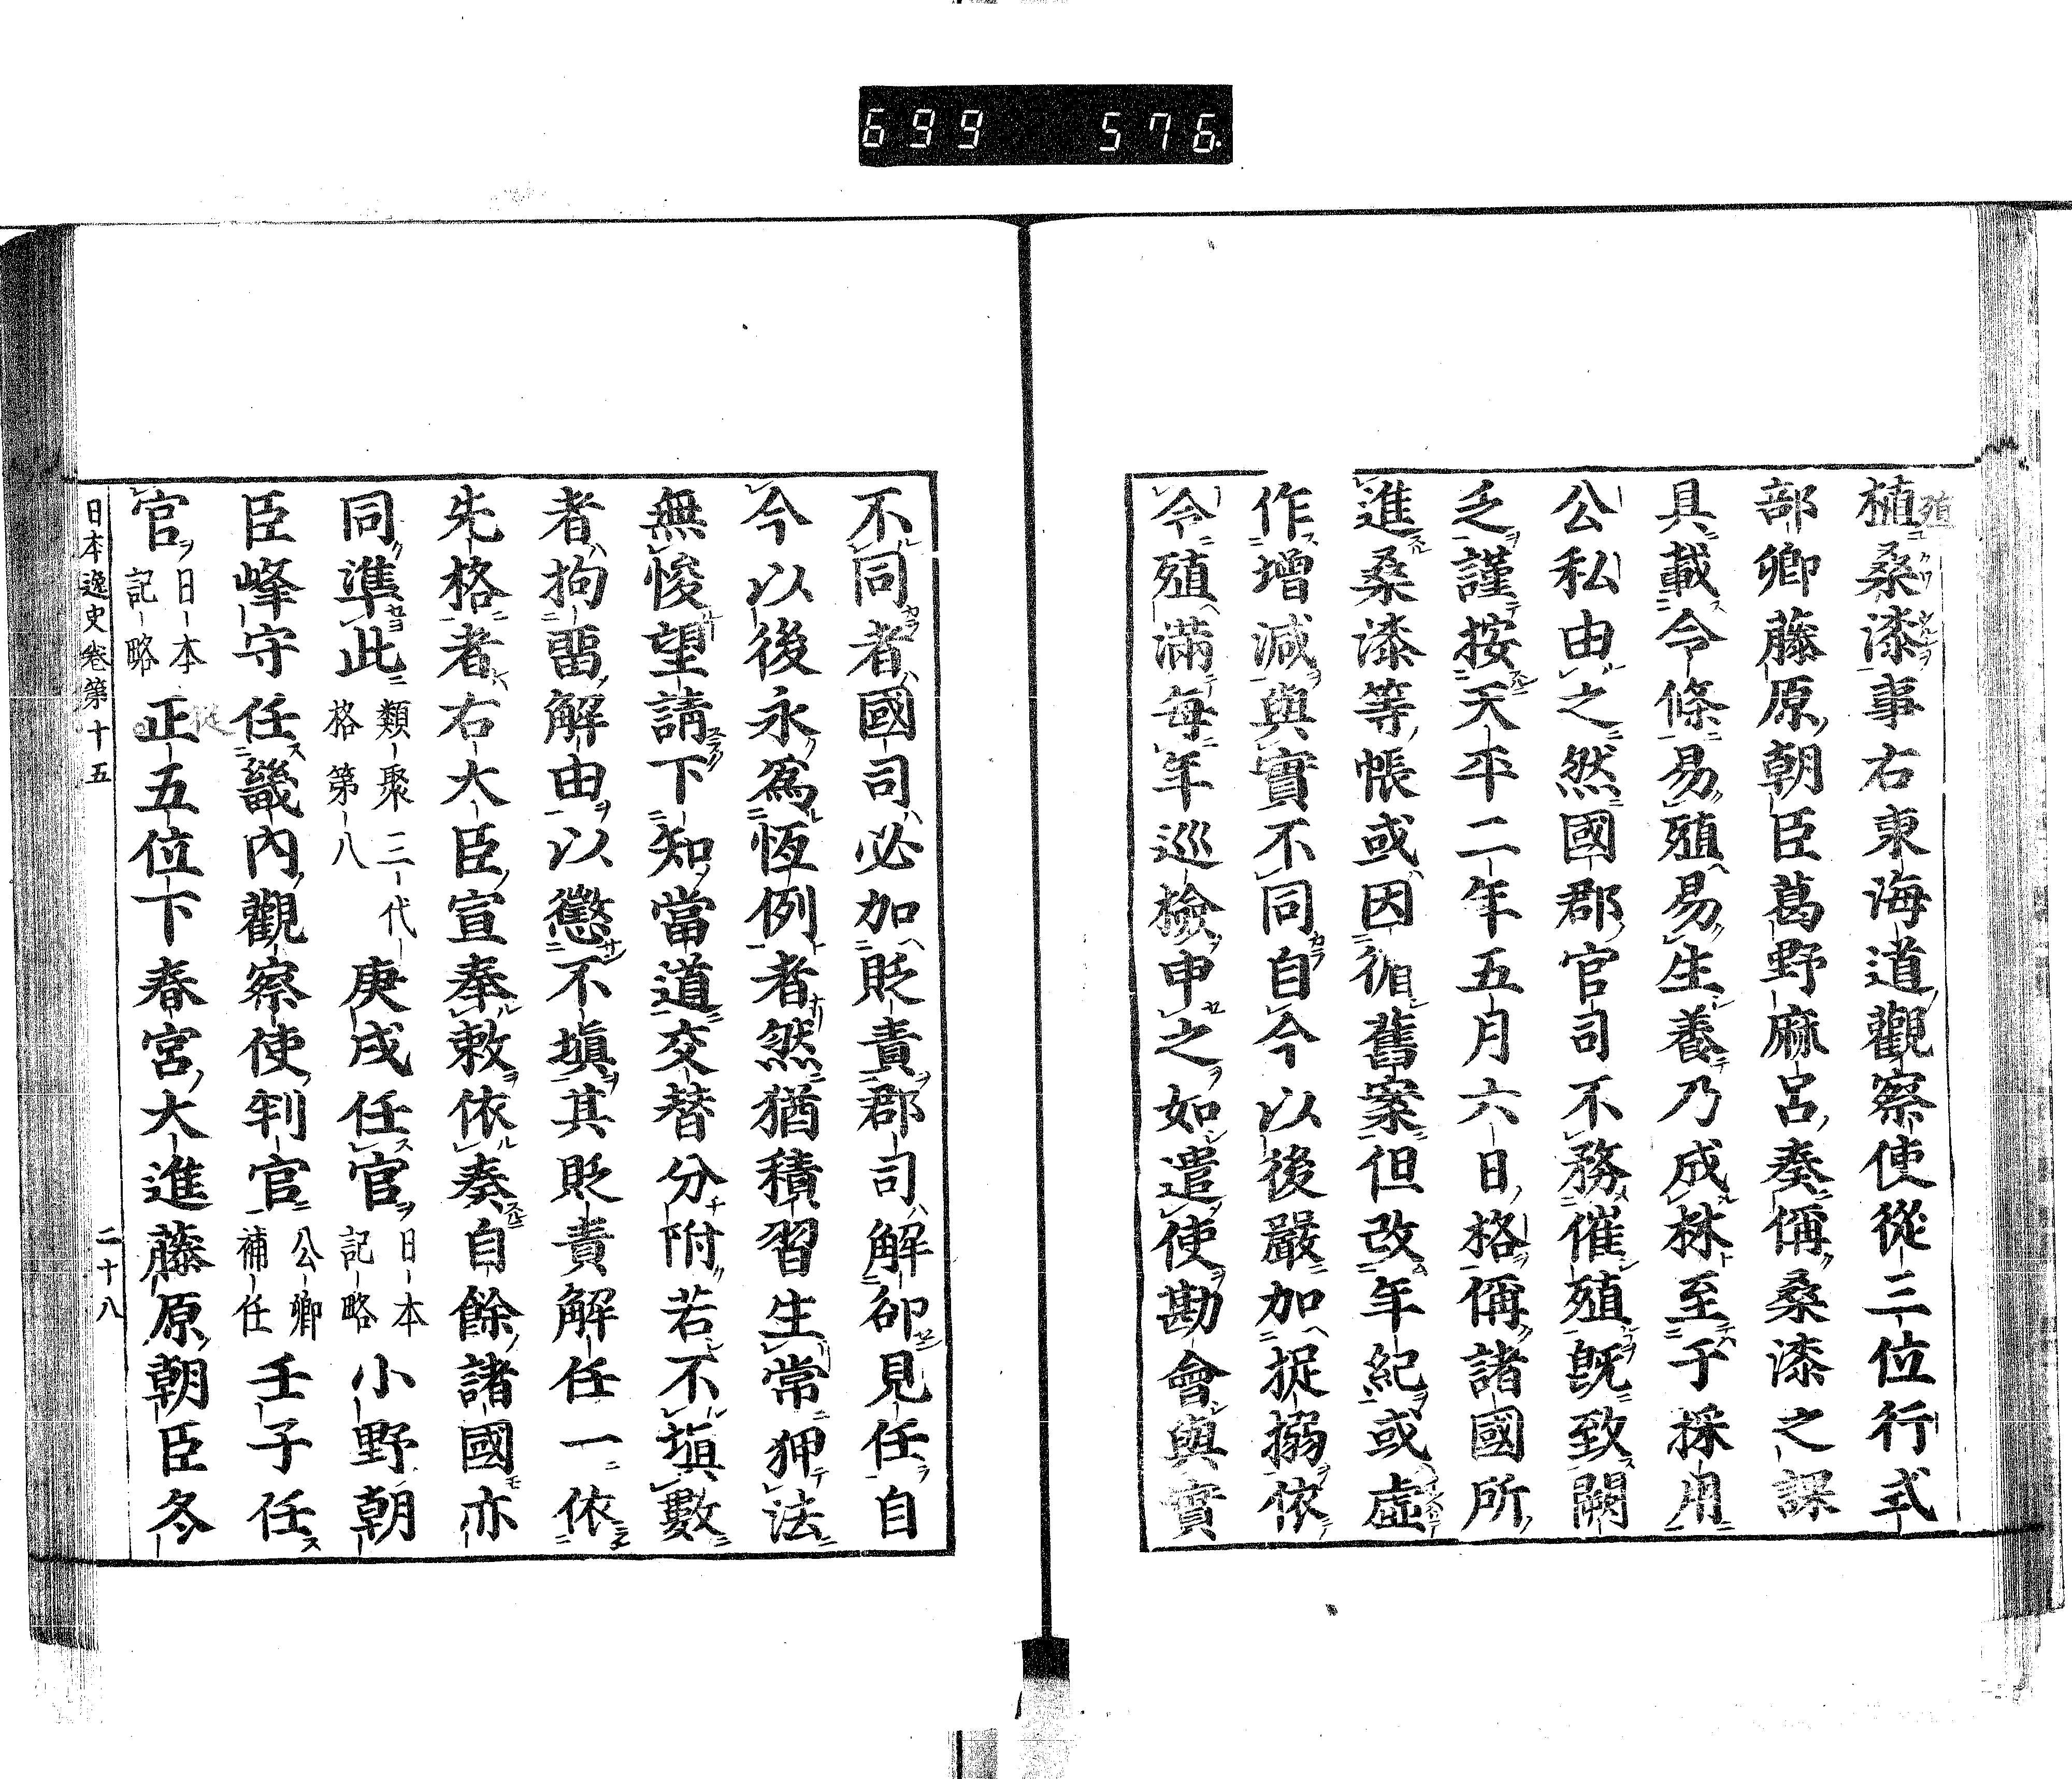 699 576
殖
植桑漆事右東海道觀察使從三位行式
部卿藤原朝臣葛野麻呂奏偁桑漆之課
具載令條易殖易生養乃成林至于採用
公私由之然國郡官司不務催殖既致闕
乏謹按天平二年五月六日格偁諸國所
進桑漆等帳或因循舊案但改年紀或虛
作增減與實不同自今以後嚴加捉搦依
令殖滿每年巡檢申之如遣使勘會與實
不同者國司必加貶責郡司解却見任自
今以後永爲恆例者然猶積習生常狎法
無悛望請下知當道交替分附若不塡數
者拘留解由以懲不塡其貶責解任一依
先格者右大臣宣奉敕依奏自餘諸國亦
同準此類聚三代格第八庚戌任官日本記略小野朝
臣峰守任畿內觀察使判官公卿補任壬子任
官日本記略正五位下春宮大進藤原朝臣冬
從
日本逸史卷第十五 二十八